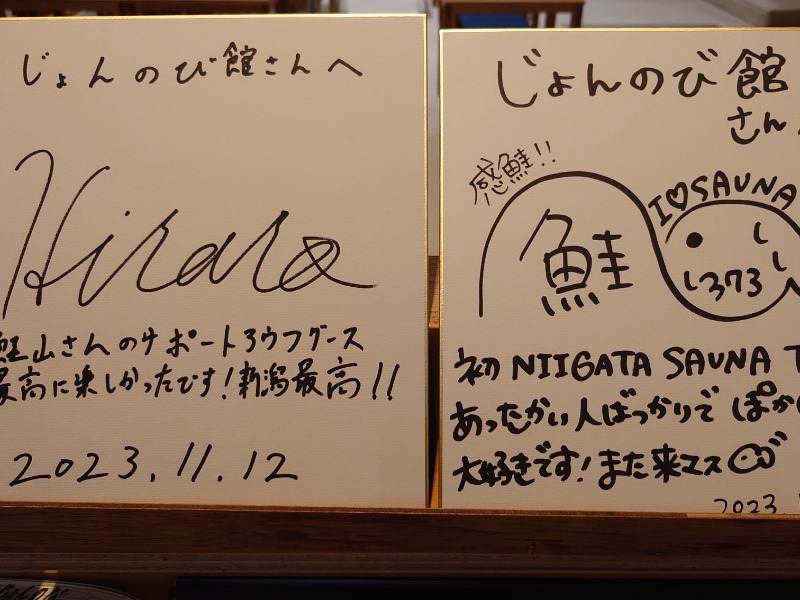 じょんのび館さんへ
Hirata
鮭山さんのサポートアウフグース
最高に楽しかったです!新潟最高!!
2023.11.12
じょんのび館
さん
感鮭!!
I♡SAUNA
鮭
1373
初 NIIGATA SAUNA T
あったかい人ばっかりで ぽか
大好きです!また来マス
2023.